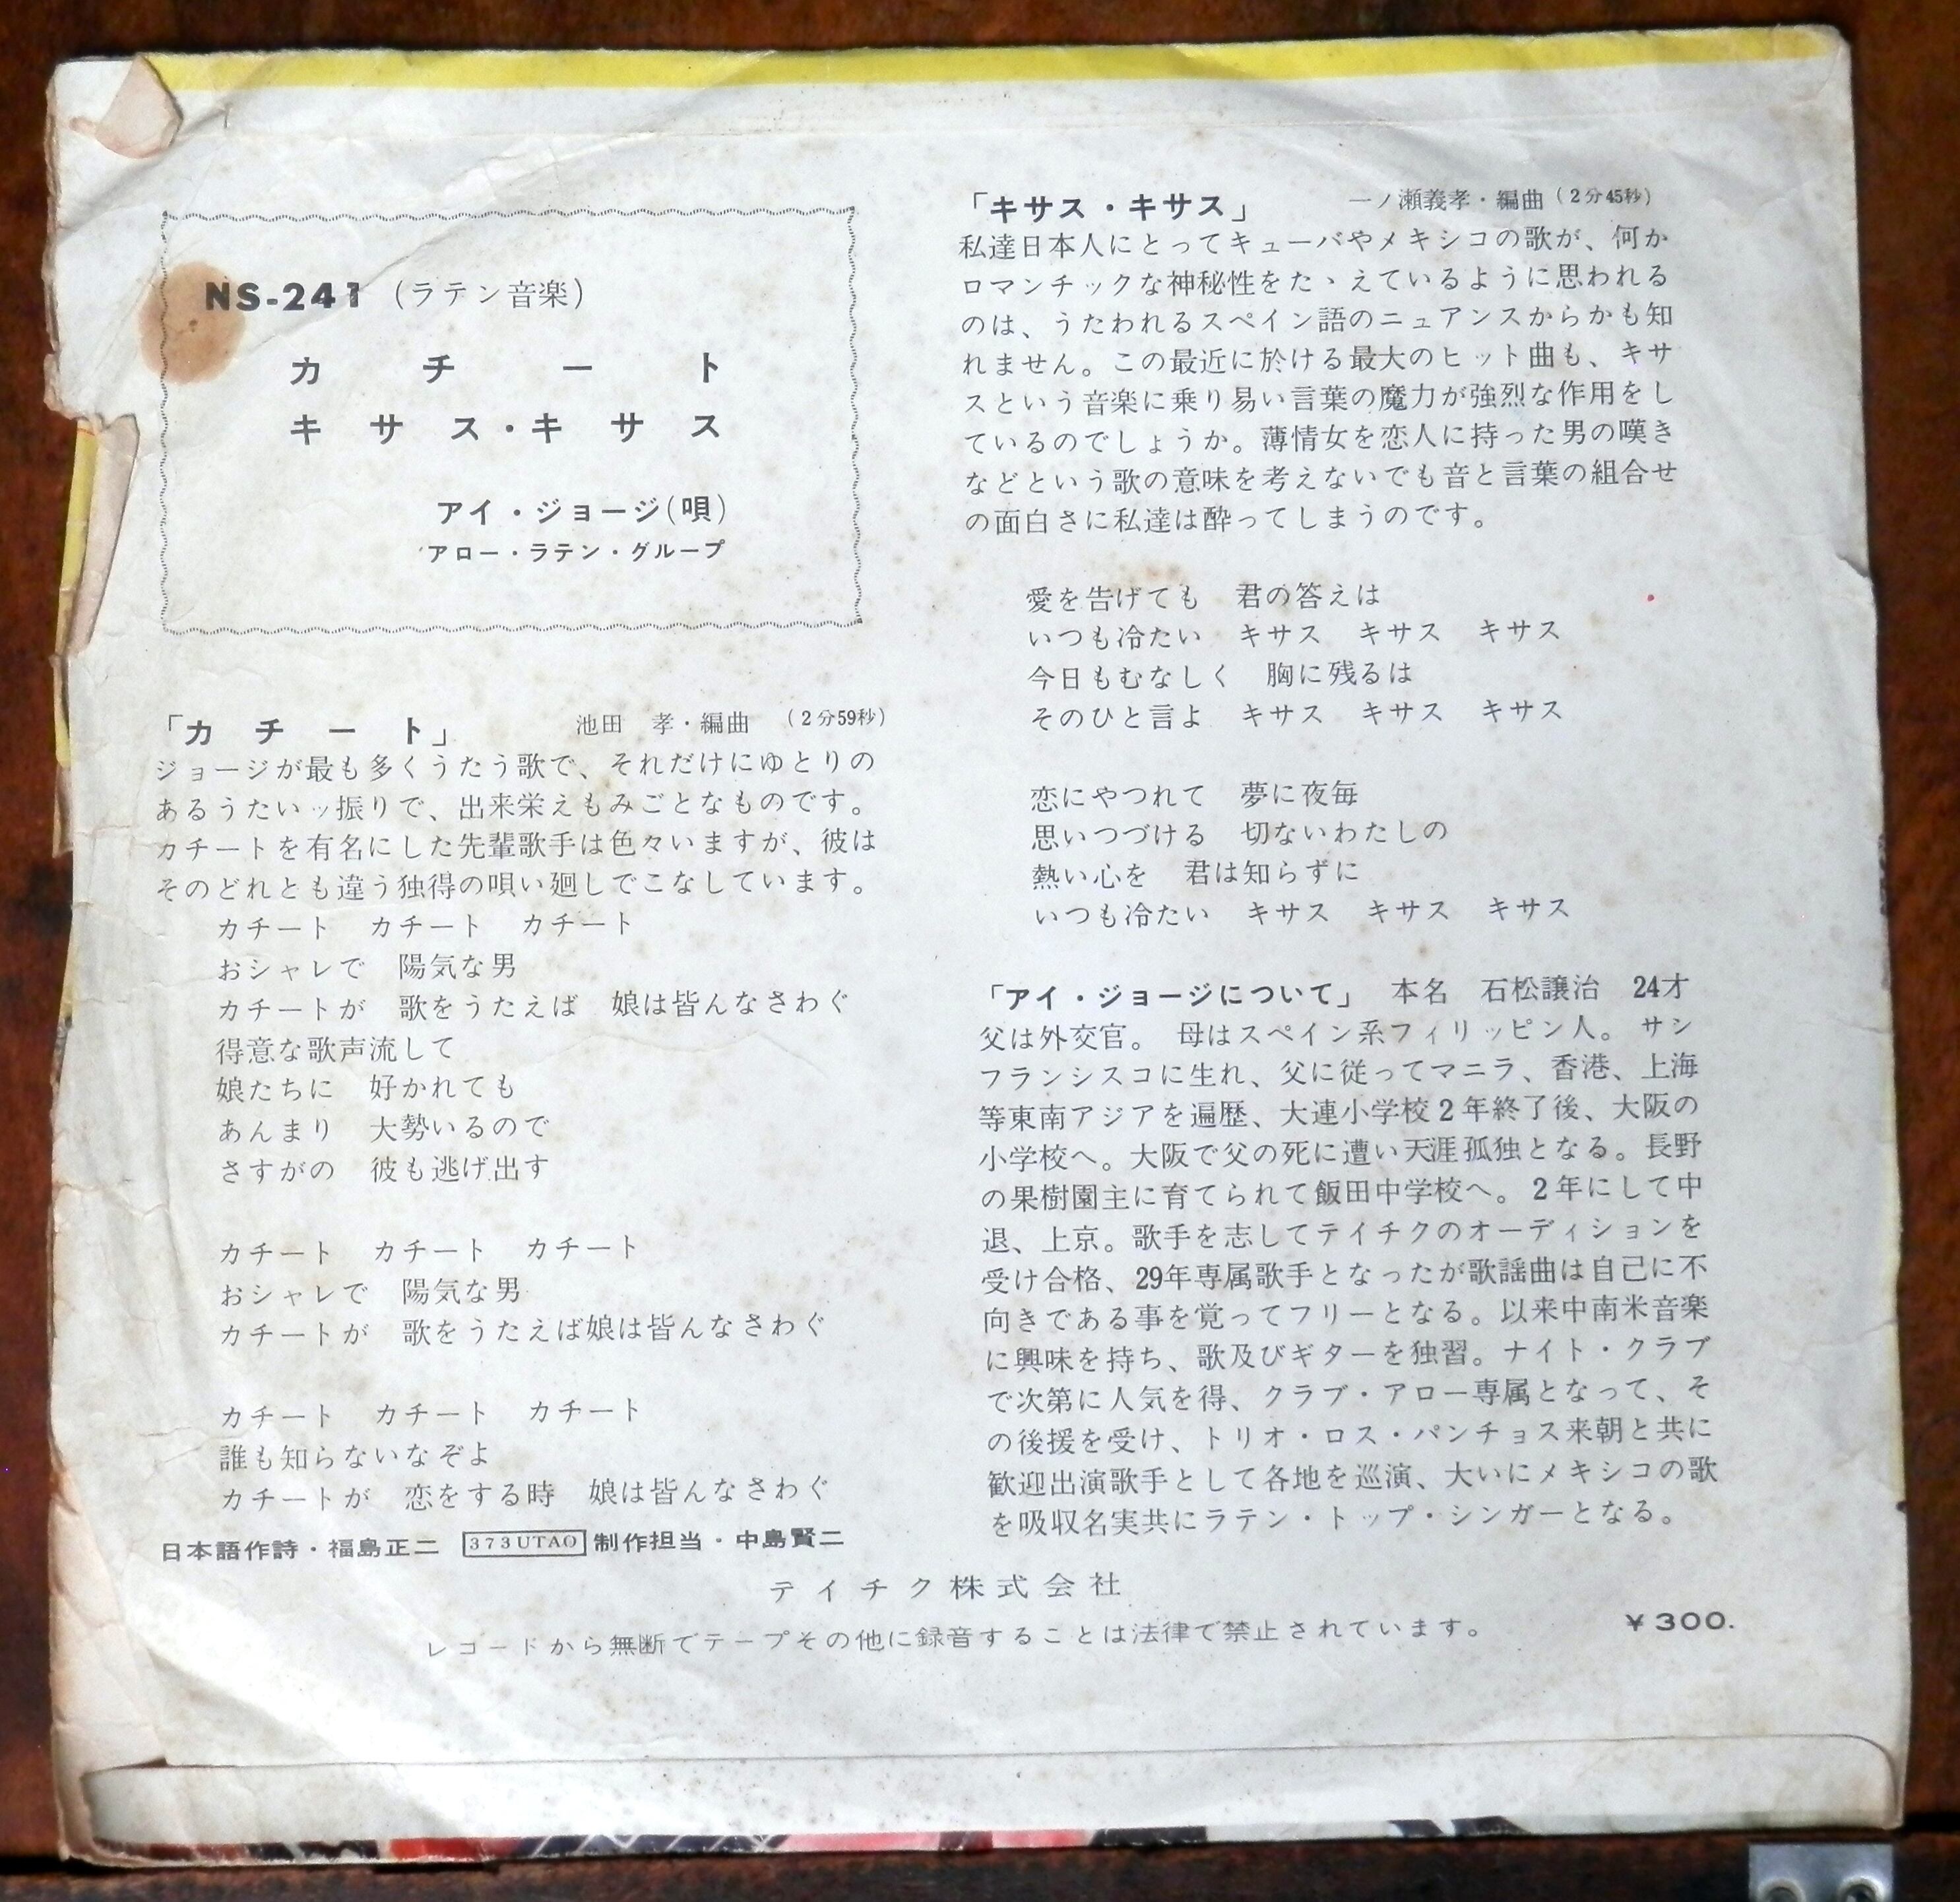 NS-241 (ラテン音楽)
カチート
キサス・キサス
アイ・ジョージ(唄)
アロー・ラテン・グループ
「カチート」 池田 孝・編曲 (2分59秒)
ジョージが最も多くうたう歌で、それだけにゆとりの
あるうたいッ振りで、出来栄えもみごとなものです。
カチートを有名にした先輩歌手は色々いますが、彼は
そのどれとも違う独得の唄い廻しでこなしています。
カチート カチート カチート
おシャレで 陽気な男
カチートが 歌をうたえば 娘は皆んなさわぐ
得意な歌声流して
娘たちに 好かれても
あんまり 大勢いるので
さすがの 彼も逃げ出す
カチート カチート カチート
おシャレで 陽気な男
カチートが 歌をうたえば娘は皆んなさわぐ
カチート カチート カチート
誰も知らないなぞよ
カチートが 恋をする時 娘は皆んなさわぐ
日本語作詩・福島正二 373UTAO 制作担当・中島賢二
「キサス・キサス」 一ノ瀬義孝・編曲 (2分45秒)
私達日本人にとってキューバやメキシコの歌が、何か
ロマンチックな神秘性をたゝえているように思われる
のは、うたわれるスペイン語のニュアンスからかも知
れません。この最近に於ける最大のヒット曲も、キサ
スという音楽に乗り易い言葉の魔力が強烈な作用をし
ているのでしょうか。薄情女を恋人に持った男の嘆き
などという歌の意味を考えないでも音と言葉の組合せ
の面白さに私達は酔ってしまうのです。
愛を告げても 君の答えは
いつも冷たい キサス キサス キサス
今日もむなしく 胸に残るは
そのひと言よ キサス キサス キサス
恋にやつれて 夢に夜毎
思いつづける 切ないわたしの
熱い心を 君は知らずに
いつも冷たい キサス キサス キサス
「アイ・ジョージについて」 本名 石松譲治 24才
父は外交官。 母はスペイン系フィリッピン人。 サン
フランシスコに生れ、父に従ってマニラ、香港、上海
等東南アジアを遍歴、大連小学校2年終了後、大阪の
小学校へ。大阪で父の死に遭い天涯孤独となる。長野
の果樹園主に育てられて飯田中学校へ。2年にして中
退、上京。歌手を志してテイチクのオーディションを
受け合格、29年専属歌手となったが歌謡曲は自己に不
向きである事を覚ってフリーとなる。以来中南米音楽
に興味を持ち、歌及びギターを独習。ナイト・クラブ
で次第に人気を得、クラブ・アロー専属となって、そ
の後援を受け、トリオ・ロス・パンチョス来朝と共に
歓迎出演歌手として各地を巡演、大いにメキシコの歌
を吸収名実共にラテン・トップ・シンガーとなる。
テイチク株式会社
レコードから無断でテープその他に録音することは法律で禁止されています。
¥300.